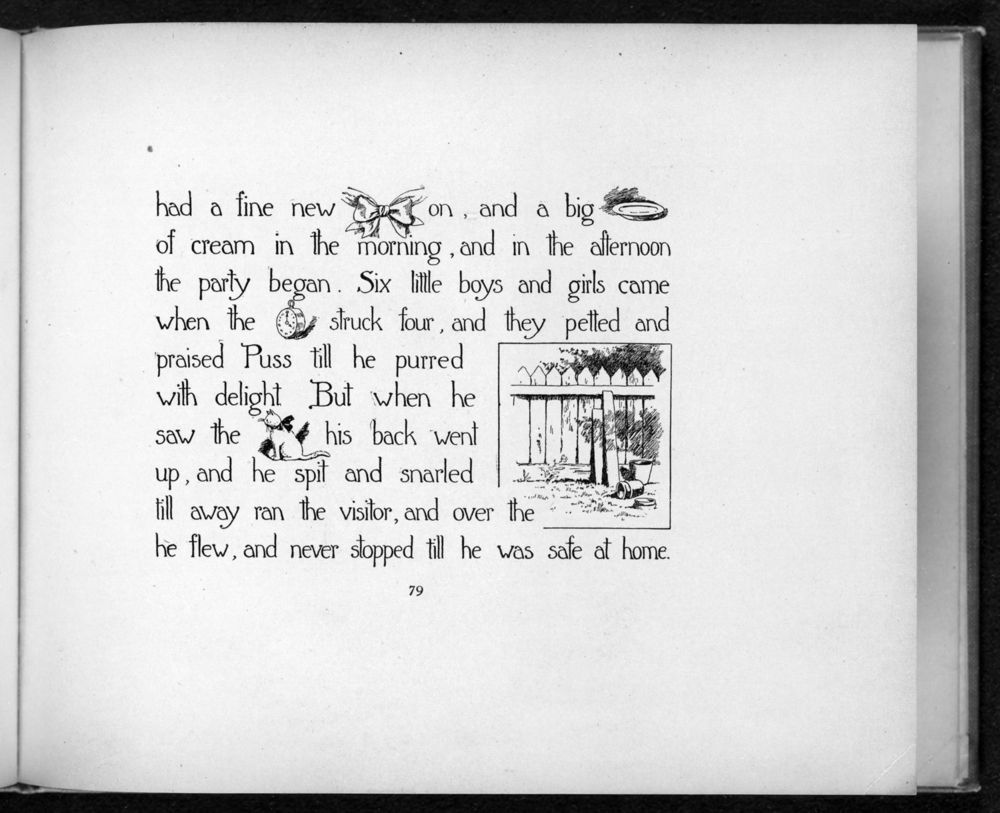 had a fine new on, and a big
of cream in the morning, and in the afternoon
the party began. Six little boys and girls came
when the struck four, and they petted and
praised Puss till he purred
with delight. But when he
saw the his back went
up, and he spit and snarled
till away ran the visitor, and over the
he flew, and never stopped till he was safe at home.
79